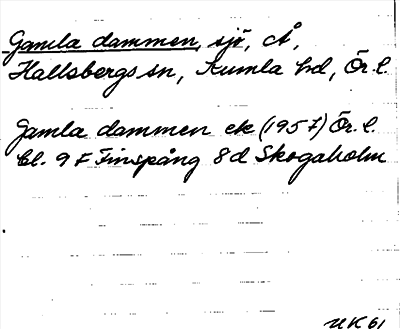 Gamla dammen, sjö, cÅ,
Hallsbergs sn, Kumla hd, Ör. l.
Gamla dammen ek (1957) Ör. l.
bl. 9 F Finspång 8 d Skogaholm
UK 61